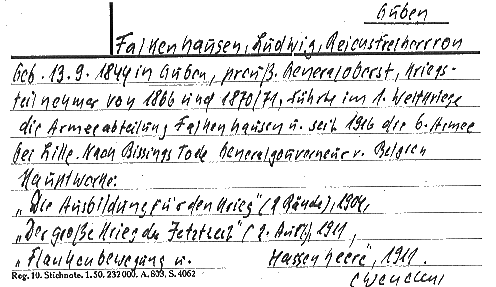 Guben
Falkenhausen, Ludwig, Reichsfreiherr von
Geb. 13.9.1844 in Guben, preuß. Generaloberst, Kriegs-
teilnehmer von 1866 und 1870/71, führte im 1. Weltkriege
die Armeeabteilung Falkenhausen u. seit 1916 die 6. Armee
bei Lille. Nach Bissings Tode Generalgouverneur v. Belgien
Hauptwerke:
„Die Ausbildung für den Krieg" (2 Bände), 1902,
„Der große Krieg der Jetztzeit" (2. Aufl.) 1911,
„Flankenbewegung u. Massenheere", 1911.
Reg. 10. Stichnote. 1. 50. 232000. A. 803. S. 4062